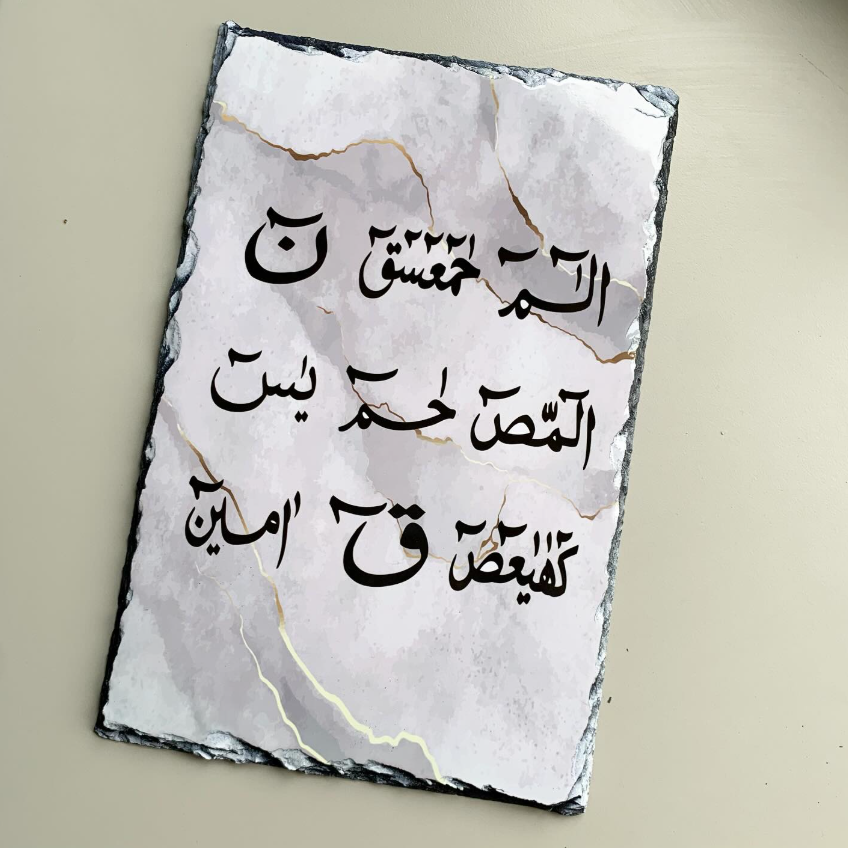 الٓـمٓ حٰمٓعٓسٓقٓ نٓ
الٓمّٓصٓ حٰـمٓ يٰسٓ
كٓهٰيٰعٓصٓ قٓ اٰمـيـنٓ